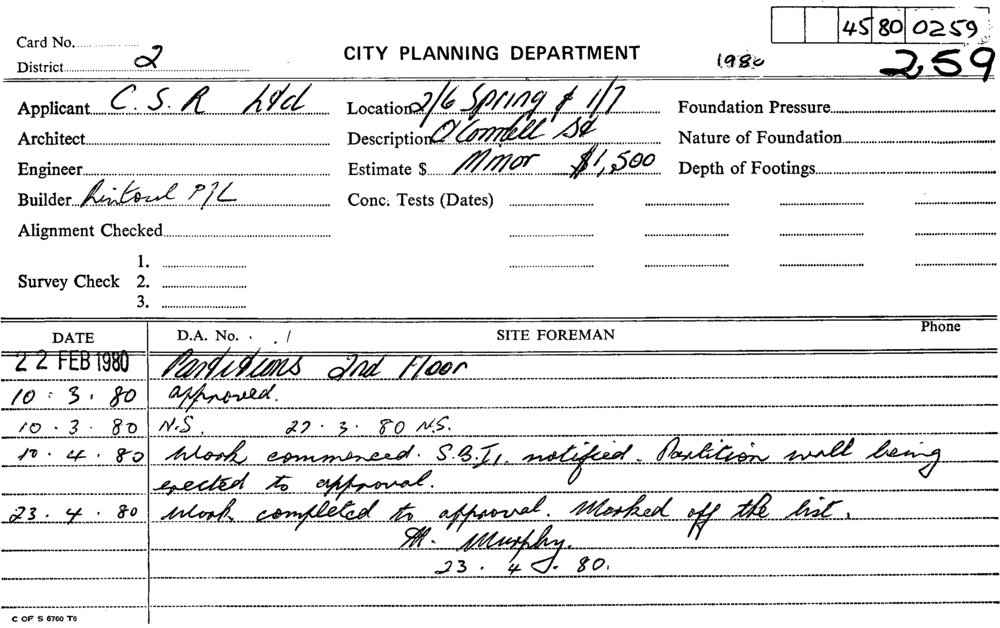 45 80 0259
Card No.
District 2
CITY PLANNING DEPARTMENT
1980
259
Applicant C. S. R Ltd
Location 2/6 Spring & 1/7
Foundation Pressure
Architect
Description O'Connell St
Nature of Foundation
Engineer
Estimate $ Minor $1,500
Depth of Footings
Builder Rintoul P/L
Conc. Tests (Dates)
Alignment Checked
Survey Check
1.
2.
3.
DATE D.A. No. / SITE FOREMAN Phone
22 FEB 1980 Partitions 2nd Floor
10 . 3 . 80 approved.
10 . 3 . 80 N.S. 27 . 3 . 80 N.S.
10 . 4 . 80 Work commenced. S.B.I. notified. Partition wall being
erected to approval.
23 . 4 . 80 Work completed to approval. Marked off the list.
M. Murphy.
23 . 4 . 80.
C OF S 6760 T6